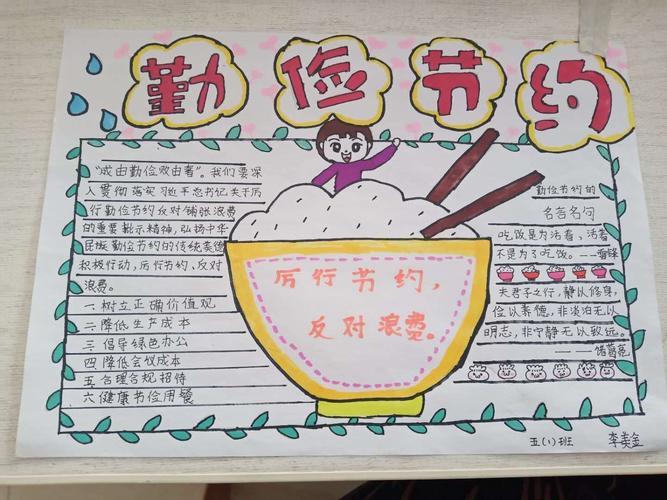 勤俭节约
"成由勤俭败由奢"。我们要深
入贯彻落实习近平总书记关于厉
行勤俭节约反对铺张浪费
的重要批示精神,弘扬中华
民族勤俭节约的传统美德
积极行动,厉行节约、反对
浪费。
一 树立正确价值观
二 降低生产成本
三 倡导绿色办公
四 降低会议成本
五 合理合规招待
六 健康节俭用餐
厉行节约,
反对浪费。
勤俭节约的
名言名句
吃饭是为活着、活着
不是为了吃饭。——雷锋
夫君子之行,静以修身,
俭以养德,非淡泊无以
明志,非宁静无以致远。
———诸葛亮
五(1)班
李美金